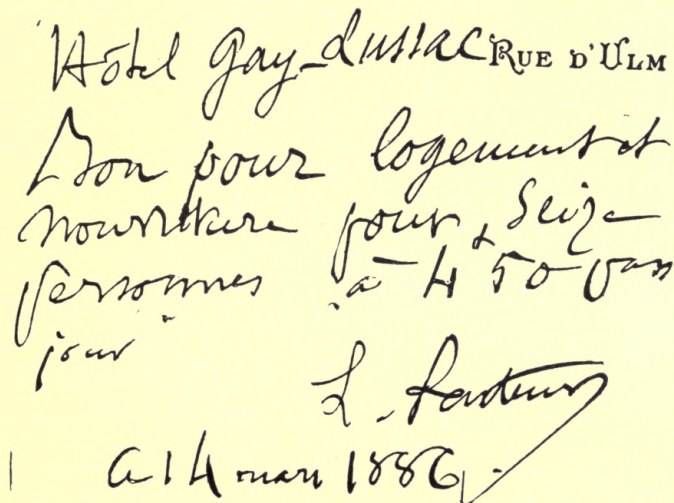 Hôtel Gay-Lussac RUE D'ULM
Bon pour logement et
nourriture pour Seize
personnes à 4 50 par
jour
L. Pasteur
Ce 14 mars 1886.